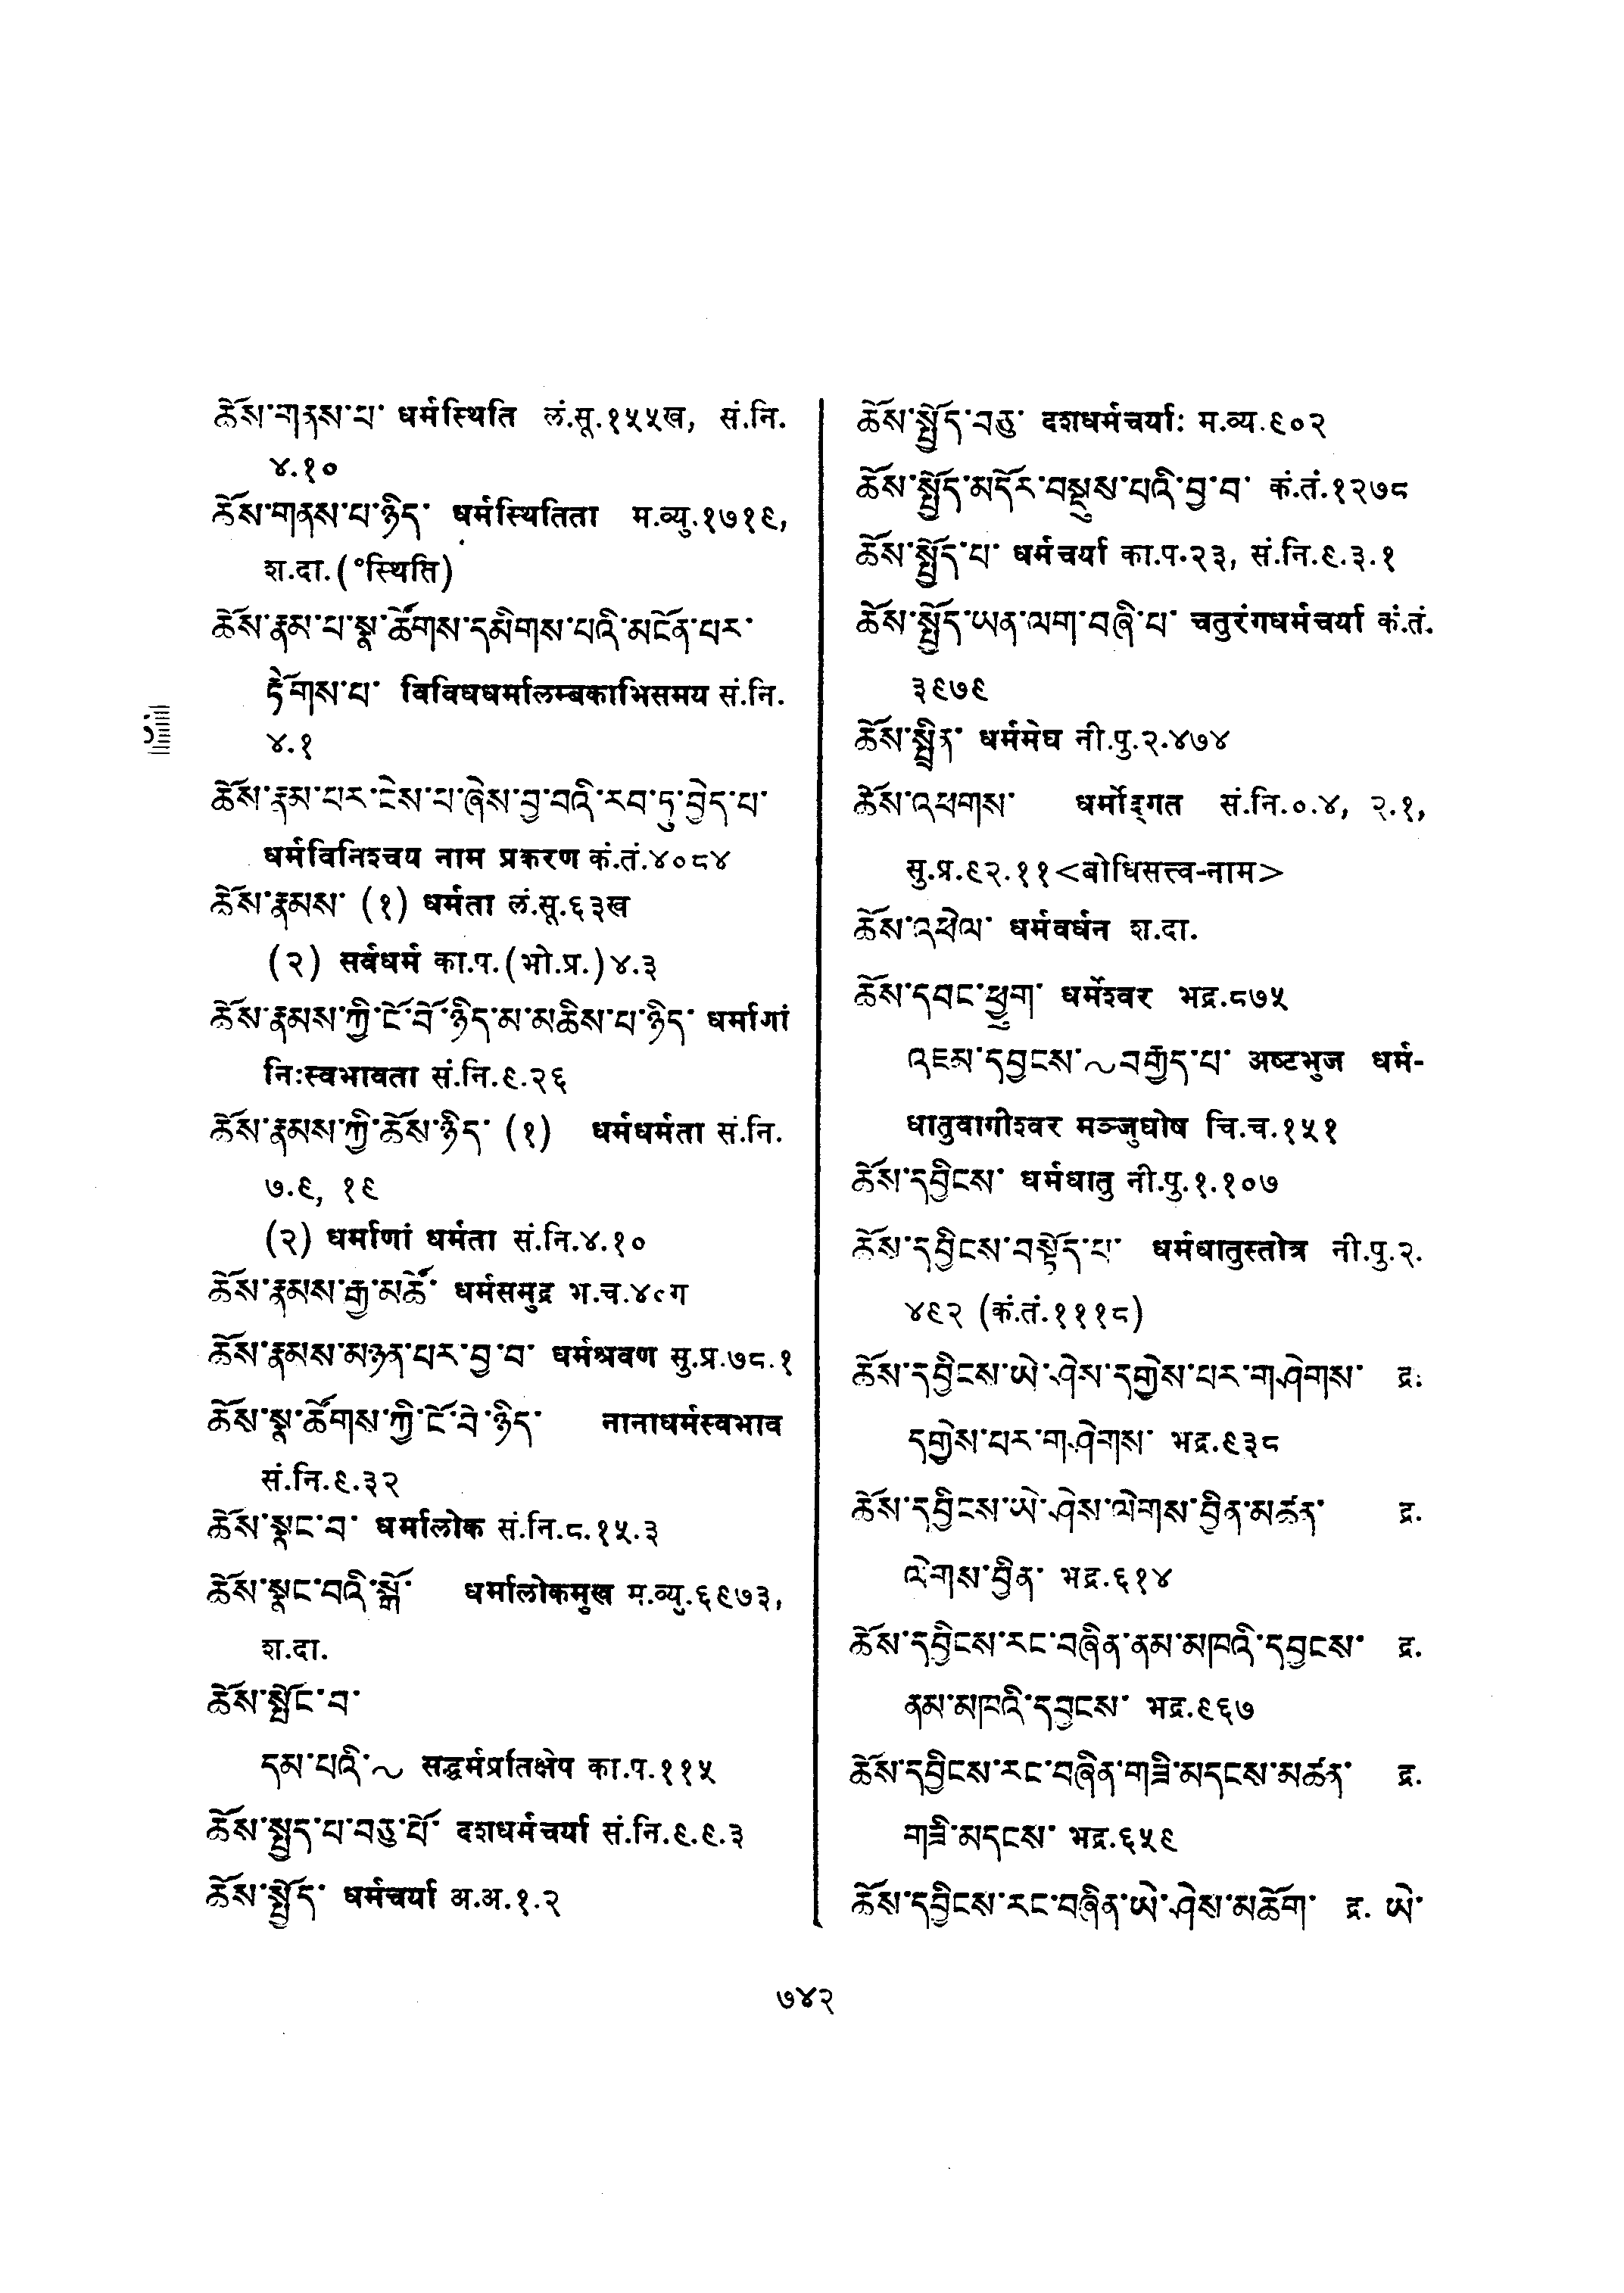 ཆོས་གནས་པ་ धर्मस्थिति लं.सू.१५५ख, सं.नि.
४.१०
ཆོས་གནས་པ་ཉིད་ धर्मस्थितिता म.व्यु.१७१९,
श.दा.(°स्थिति)
ཆོས་རྣམ་པ་སྣ་ཚོགས་དམིགས་པའི་མངོན་པར་
རྟོགས་པ་ विविधधर्मालम्बकाभिसमय सं.नि.
४.१
ཆོས་རྣམ་པར་ངེས་པ་ཞེས་བྱ་བའི་རབ་ཏུ་བྱེད་པ་
धर्मविनिश्चय नाम प्रकरण कं.तं.४०८४
ཆོས་རྣམས་ (१) धर्मता लं.सू.६३ख
(२) सर्वधर्म का.प.(भो.प्र.)४.३
ཆོས་རྣམས་ཀྱི་ངོ་བོ་ཉིད་མ་མཆིས་པ་ཉིད་ धर्माणां
निःस्वभावता सं.नि.९.२६
ཆོས་རྣམས་ཀྱི་ཆོས་ཉིད་ (१) धर्मधर्मता सं.नि.
७.९, १९
(२) धर्माणां धर्मता सं.नि.४.१०
ཆོས་རྣམས་རྒྱ་མཚོ་ धर्मसमुद्र भ.च.४९ग
ཆོས་རྣམས་མཉན་པར་བྱ་བ་ धर्मश्रवण सु.प्र.७८.१
ཆོས་སྣ་ཚོགས་ཀྱི་ངོ་བོ་ཉིད་ नानाधर्मस्वभाव
सं.नि.९.३२
ཆོས་སྣང་བ་ धर्मालोक सं.नि.८.१५.३
ཆོས་སྣང་བའི་སྒོ་ धर्मालोकमुख म.व्यु.६९७३,
श.दा.
ཆོས་སྤོང་བ་
དམ་པའི་~ सद्धर्मप्रतिक्षेप का.प.११५
ཆོས་སྤྱད་པ་བཅུ་པོ་ दशधर्मचर्या सं.नि.९.९.३
ཆོས་སྤྱོད་ धर्मचर्या अ.अ.१.२
ཆོས་སྤྱོད་བཅུ་ दशधर्मचर्याः म.व्य.९०२
ཆོས་སྤྱོད་མདོར་བསྡུས་པའི་བྱ་བ་ कं.तं.१२७८
ཆོས་སྤྱོད་པ་ धर्मचर्या का.प.२३, सं.नि.९.३.१
ཆོས་སྤྱོད་ཡན་ལག་བཞི་པ་ चतुरंगधर्मचर्या कं.तं.
३९७९
ཆོས་སྤྲིན་ धर्ममेघ नी.पु.२.४७४
ཆོས་འཕགས་ धर्मोद्गत सं.नि.०.४, २.१,
सु.प्र.९२.११<बोधिसत्त्व-नाम>
ཆོས་འཕེལ་ धर्मवर्धन श.दा.
ཆོས་དབང་ཕྱུག་ धर्मेश्वर भद्र.८७५
འཇམ་དབྱངས་~བརྒྱད་པ་ अष्टभुज धर्म-
धातुवागीश्वर मञ्जुघोष चि.च.१५१
ཆོས་དབྱིངས་ धर्मधातु नी.पु.१.१०७
ཆོས་དབྱིངས་བསྟོད་པ་ धर्मधातुस्तोत्र नी.पु.२.
४९२ (कं.तं.१११८)
ཆོས་དབྱིངས་ཡེ་ཤེས་དགྱེས་པར་གཤེགས་ द्र.
དགྱེས་པར་གཤེགས་ भद्र.९३८
ཆོས་དབྱིངས་ཡེ་ཤེས་ལེགས་བྱིན་མཚན་ द्र.
ལེགས་བྱིན་ भद्र.६१४
ཆོས་དབྱིངས་རང་བཞིན་ནམ་མཁའི་དབྱངས་ द्र.
ནམ་མཁའི་དབྱངས་ भद्र.९६७
ཆོས་དབྱིངས་རང་བཞིན་གཟི་མདངས་མཚན་ द्र.
གཟི་མདངས་ भद्र.६५९
ཆོས་དབྱིངས་རང་བཞིན་ཡེ་ཤེས་མཆོག་ द्र. ཡེ་
७४२